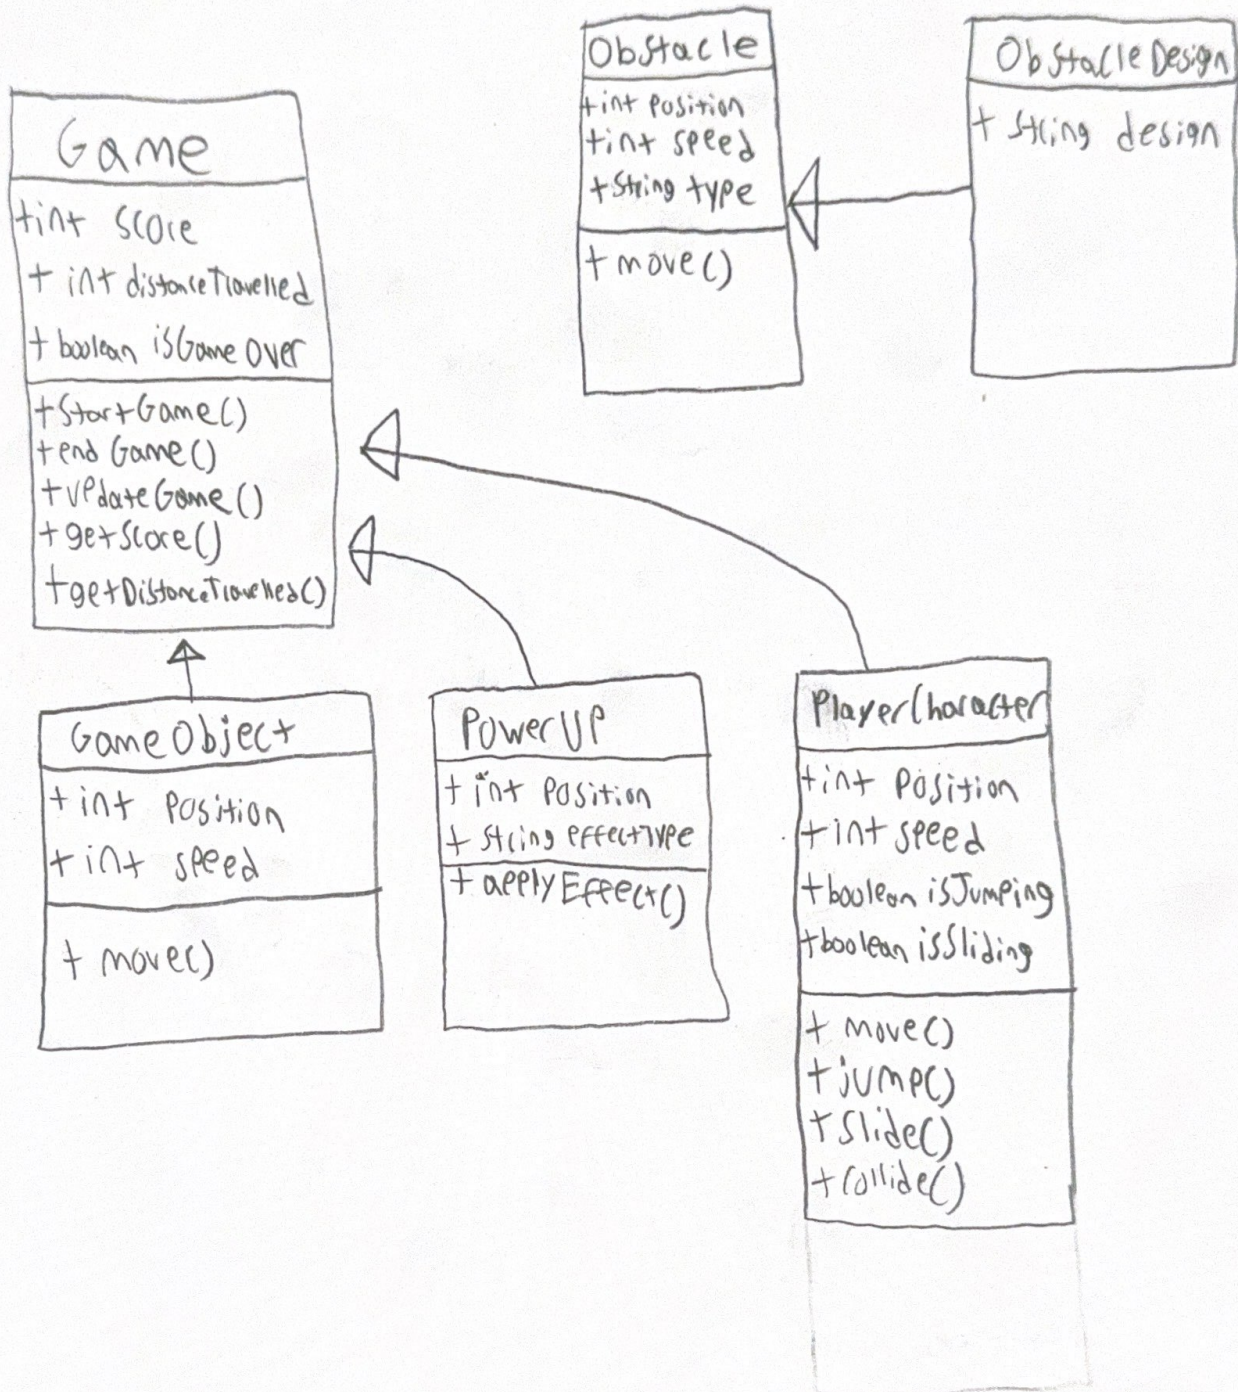 Game
+int score
+ int distanceTravelled
+ boolean isGameOver
+StartGame()
+endGame()
+updateGame()
+getScore()
+getDistanceTravelled()
Obstacle
+int position
+int speed
+String type
+ move()
ObstacleDesign
+ String design
GameObject
+ int position
+ int speed
+ move()
PowerUP
+ int position
+ String effectType
+ applyEffect()
PlayerCharacter
+int position
+int speed
+boolean isJumping
+boolean isSliding
+ move()
+jump()
+Slide()
+collide()